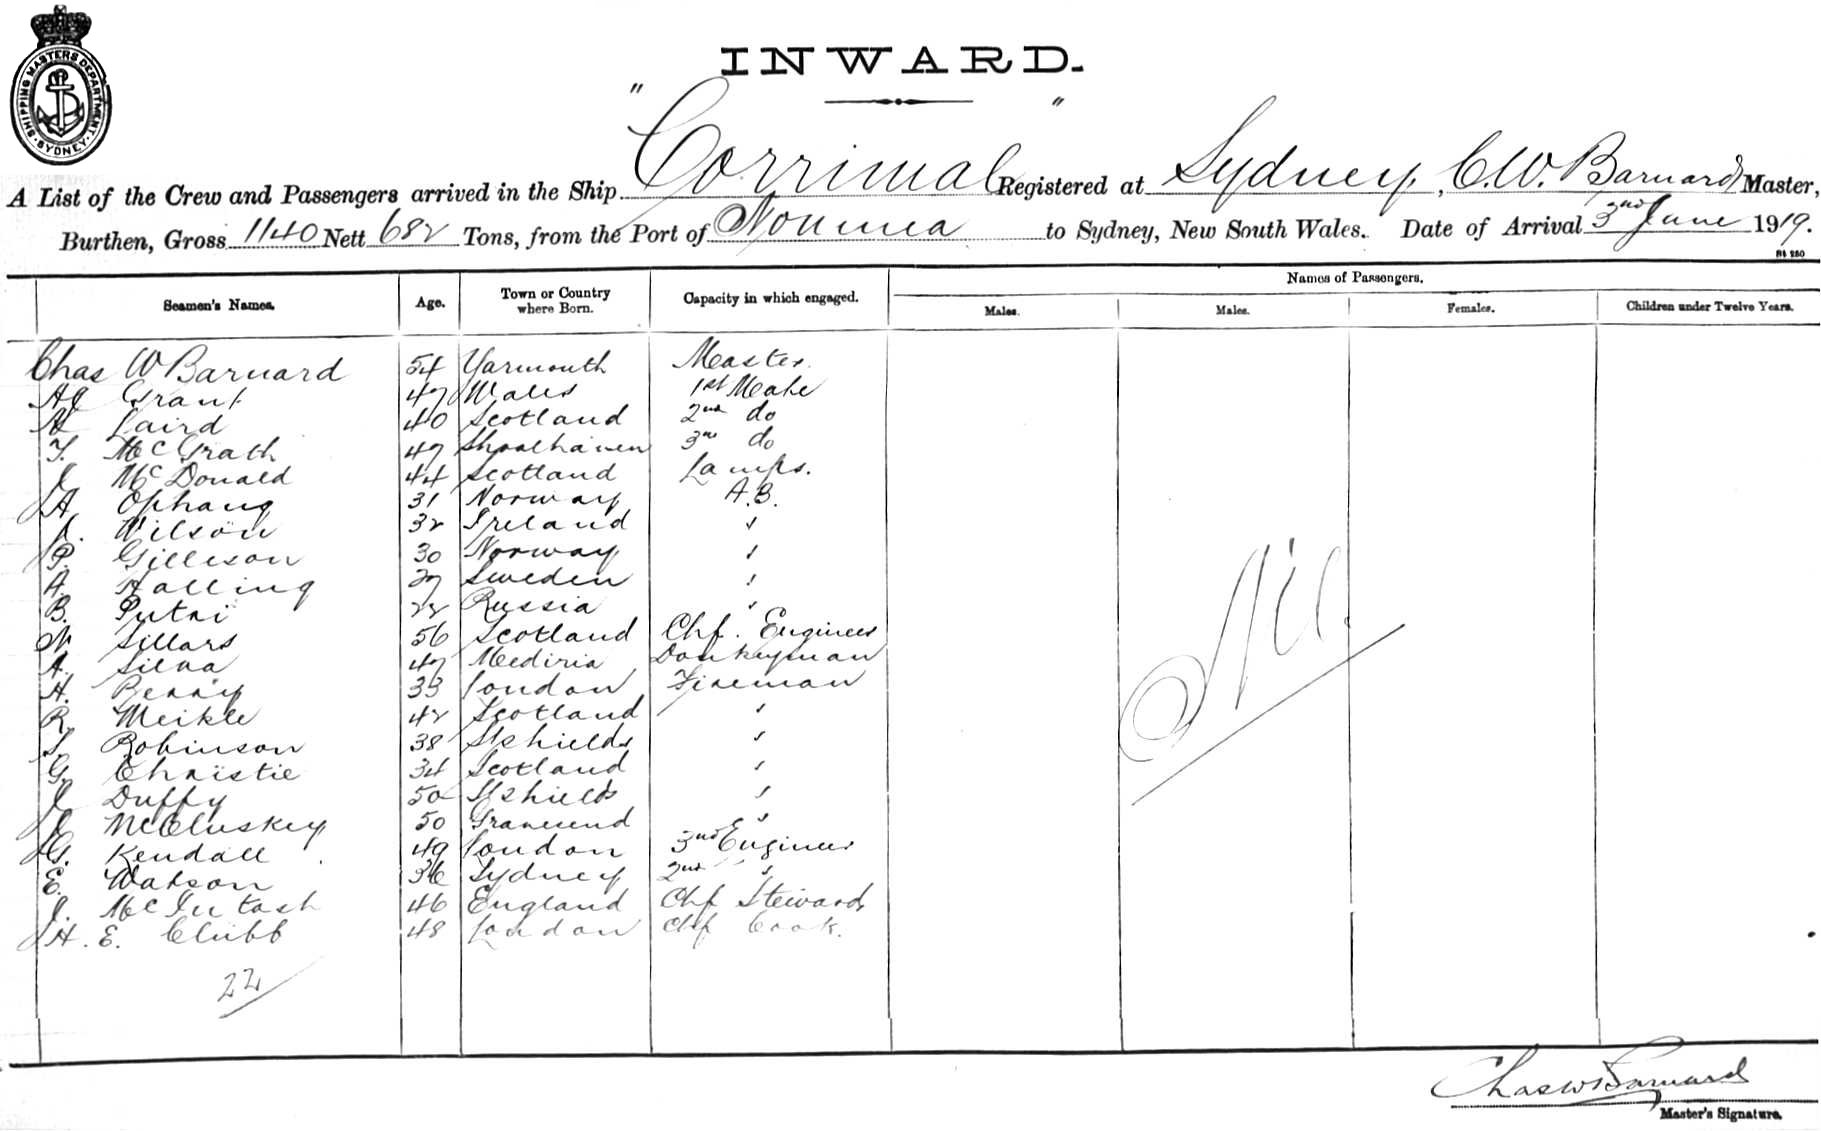 SHIPPING MASTERS DEPARTMENT
SYDNEY
INWARD.
A List of the Crew and Passengers arrived in the Ship "Corrimal" Registered at Sydney, C.W. Barnard Master,
Burthen, Gross 1140 Nett 682 Tons, from the Port of Noumea to Sydney, New South Wales. Date of Arrival 3rd June 1919.
Seamen's Names. Age. Town or Country where Born. Capacity in which engaged. Names of Passengers.
Males. Males. Females. Children under Twelve Years.
Chas W Barnard 54 Yarmouth Master.
Grant 47 Wales 1st Mate
Laird 40 Scotland 2nd do
T. McGrath 47 Shoalhaven 3rd do
J McDonald 44 Scotland Lamps.
A Ophaug 31 Norway A.B.
J. Wilson 32 Ireland "
P. Gilleson 30 Norway "
A. Halling 27 Sweden "
B. Putni 22 Russia "
N. Sillars 56 Scotland Chf. Engineer
A. Silva 47 Mediria Donkeyman
H. Berry 33 London Fireman
R. Meikle 42 Scotland "
T. Robinson 38 Sshields "
G. Christie 34 Scotland "
J Duffy 50 Sshields "
J McCluskey 50 Gravesend "
G. Kendall 49 London 3rd Engineer
E. Watson 36 Sydney 2nd "
J. McIntosh 46 England Chf Steward
H. E. Clubb 48 London Chf Cook.
Nil.
22
Chas W Barnard
Master's Signature.